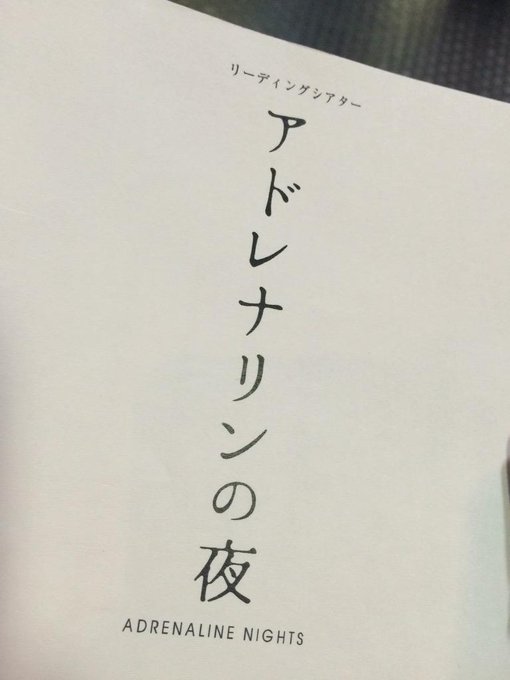 リーディングシアター
アドレナリンの夜
ADRENALINE NIGHTS